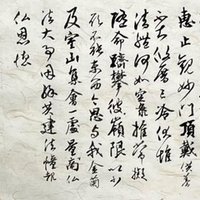 恵止觀妙門頂戴供養
不知攸厝已冷伏惟
法體何如空海推常擬
隨命躋攀彼嶺限以少
願不能東西今思与我金蘭
及室山集會一處量商仏
法大事因縁共建法幢報
仏恩德